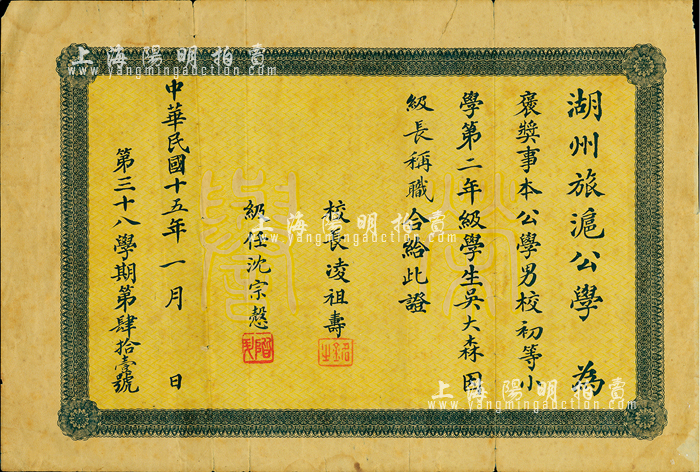 湖州旅滬公學 為
褒獎事本公學男校初等小
學第二年級學生吳大森因
級長稱職合給此證
校長凌祖壽
級任沈宗愨
中華民國十五年一月 日
第三十八學期第肆拾壹號
上海陽明拍賣
www.yangmingauction.com
上海陽明拍賣
www.yangmingauction.com
上海陽明拍賣
www.yangmingauction.com